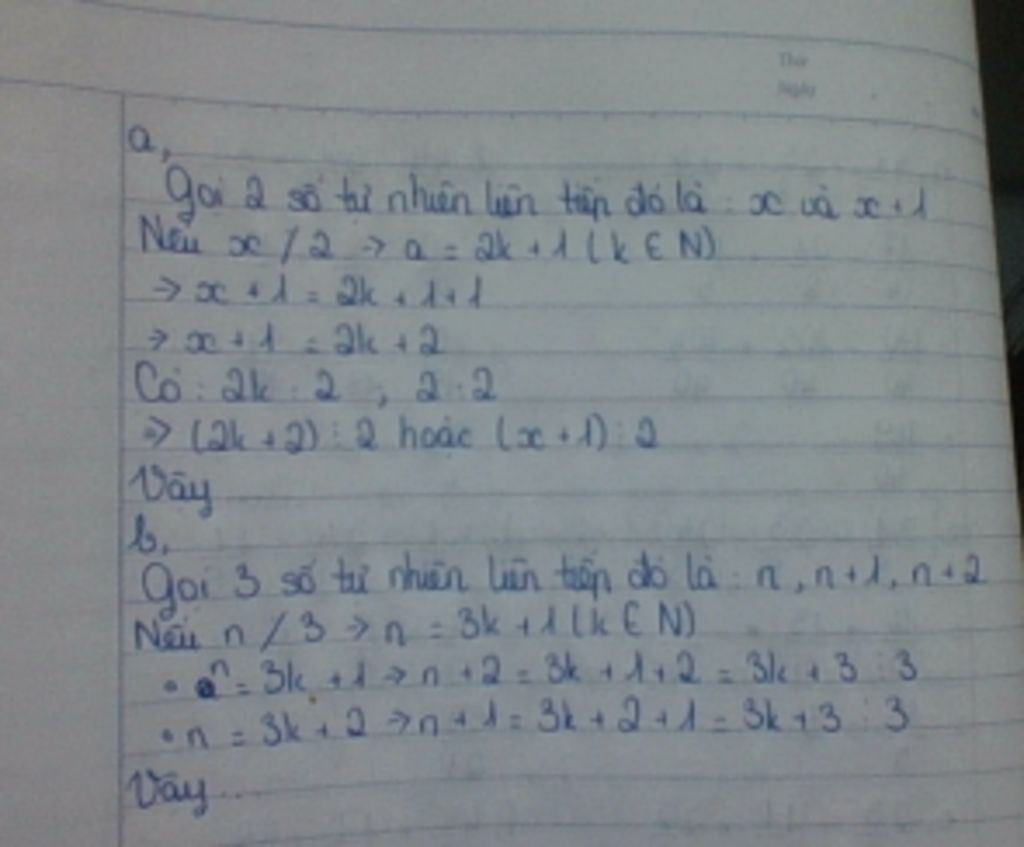 Thứ
Ngày
a,
Gọi 2 số tự nhiên liên tiếp đó là : x và x + 1
Nếu x ⋮̸ 2 → a = 2k + 1 ( k ∈ N)
→ x + 1 = 2k + 1 + 1
→ x + 1 = 2k + 2
Có : 2k ⋮ 2 , 2 ⋮ 2
⇒ (2k + 2) ⋮ 2 hoặc (x + 1) ⋮ 2
Vậy
b,
Gọi 3 số tự nhiên liên tiếp đó là : n, n+1, n+2
Nếu n ⋮̸ 3 → n = 3k + 1 ( k ∈ N)
• n = 3k + 1 → n + 2 = 3k + 1 + 2 = 3k + 3 ⋮ 3
• n = 3k + 2 → n + 1 = 3k + 2 + 1 = 3k + 3 ⋮ 3
Vậy ...